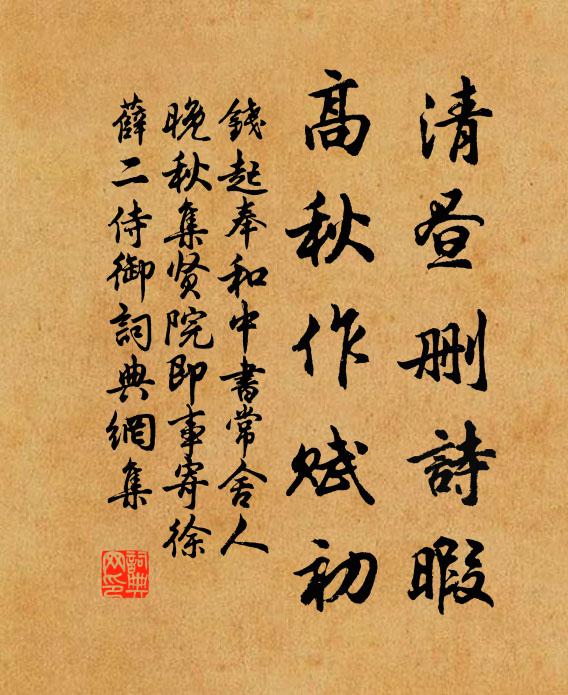 清昼删詩暇
高秋作赋初
錢起奉和中書常舍人
晚秋集贤院即事寄徐
薛二侍御詞典網集
詞典網印